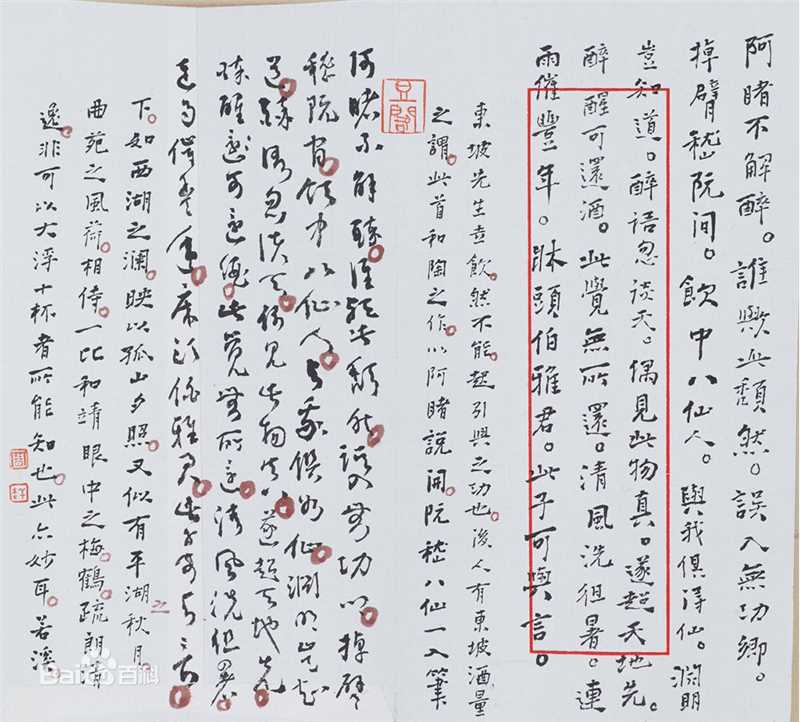 阿睹不解醉。誰歟此頹然。誤入無功鄉。
掉臂嵇阮间。飲中八仙人。與我俱得仙。淵明
豈知道。醉語忽談天。偶見此物真。遂超天地先。
醉醒可還酒。此覺無所還。清風洗徂暑。連
雨催豐年。牀頭伯雅君。此子可與言。
東坡先生喜飲。然不能。起引興之功也。後人有東坡酒量
之謂。此首和陶之作。以阿睹說開。阮嵇八仙一入筆
阿睹不解醉。誰歟此頹然。誤入無功鄉。掉臂
嵇阮间。飲中八仙人。與我俱得仙。淵明豈知
道。醉語忽談天。偶見此物真。遂超天地先。
醉醒還可還酒。此覺無所還。清風洗徂暑。
連雨催豐年。床頭伯雅君。此子可與言。
下。如西湖之瀾。映以孤山夕照。又似有平湖之秋月。
曲苑之風荷。相侍。一比和靖眼中之梅。鶴。疏朗清
逸。非可以大浮十杯者所能知也。此亦妙耳。若溪。
Baidu百科